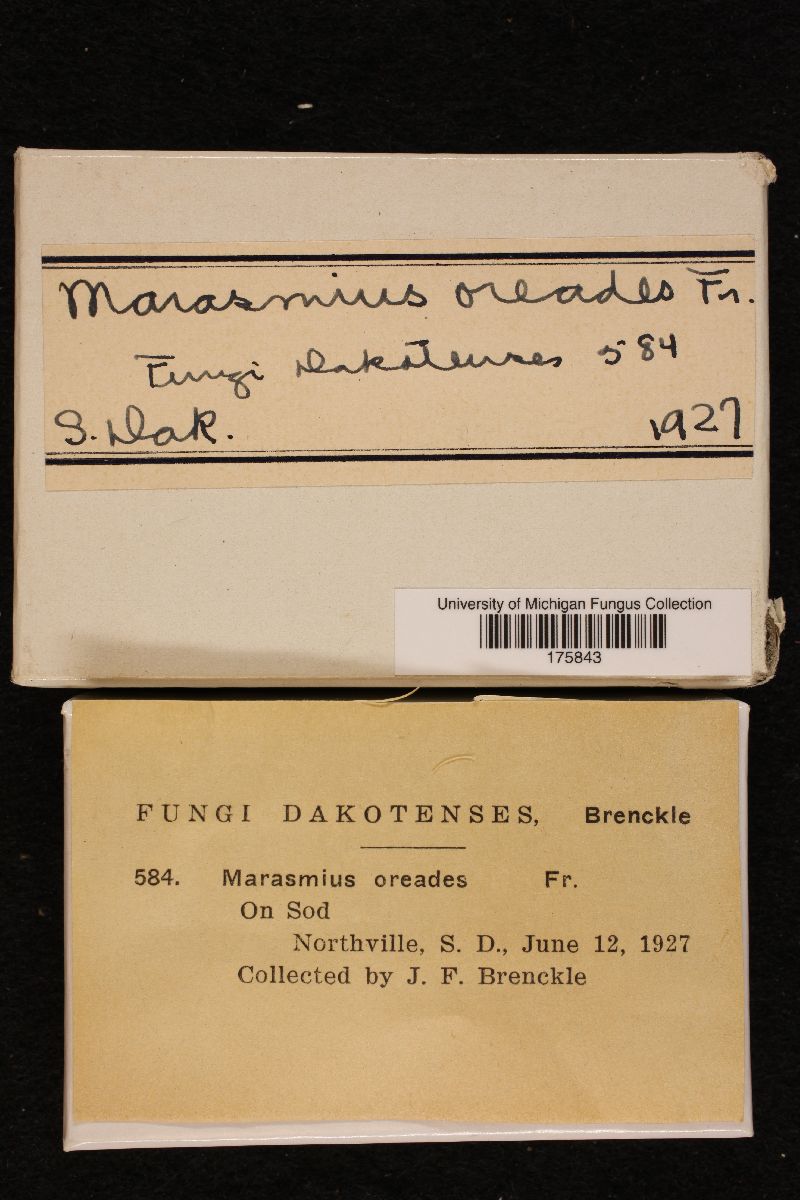 Marasmius oreades Fr.
Fungi Dakotenses 584
S. Dak. 1927
University of Michigan Fungus Collection
175843
FUNGI DAKOTENSES, Brenckle
584. Marasmius oreades Fr.
On Sod
Northville, S. D., June 12, 1927
Collected by J. F. Brenckle